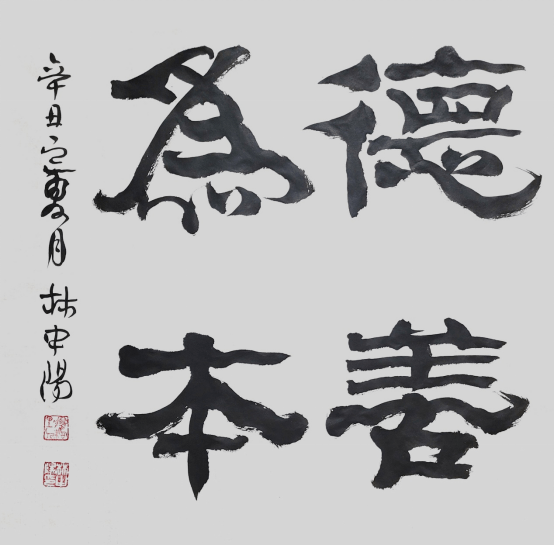 德善
為本
辛丑月 林中陽